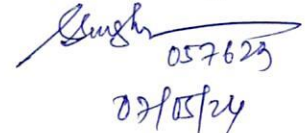 Singh
057629
07/05/24